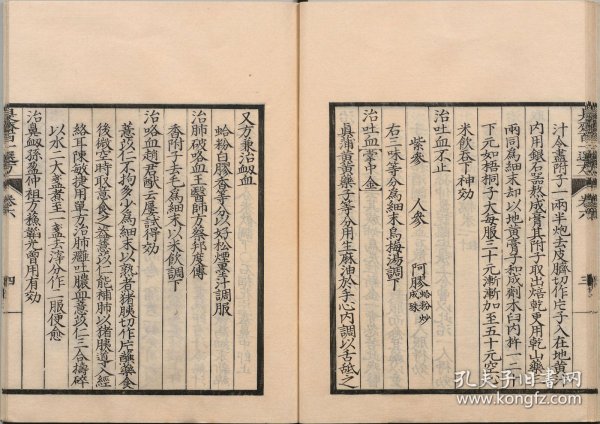 汁令盡附子一兩半炮去皮臍切作片子入在地黃汁
內用銀石器熬成膏其附子取出焙乾更用乾山藥
兩同爲細末却以地黃膏子和成劑木臼內杵一二
下元如梧桐子大每服三十元漸漸加至五十元空心
米飲吞下神効
治吐血不止
紫參 人參 阿膠蛤粉炒成珠
右三味等分爲細末烏梅湯調下
治吐血囊中金
眞蒲黃黃藥子等分用生麻油於手心內調以舌舐之
三
又方兼治衂血
蛤粉白膠香等分以好松煙墨汁調服
治肺破咯血王醫師方蔡邱度傳
香附子去毛爲細末以米飲調下
治咯血趙君猷云屢試得効
薏苡仁不拘多少爲細末以熟煮猪胰切作片蘸藥食
後微空時取意食之然薏苡仁能補肺以猪胰道入經
絡耳陳敏捷用里方治肺癰吐膿血薏苡仁三合擣碎
以水二大盞煮至一盞去滓分作二服便愈
治鼻衂孫盈仲祖方後韓光曾用有効
卷六
四
孔夫子旧书网
www.kongfz.com